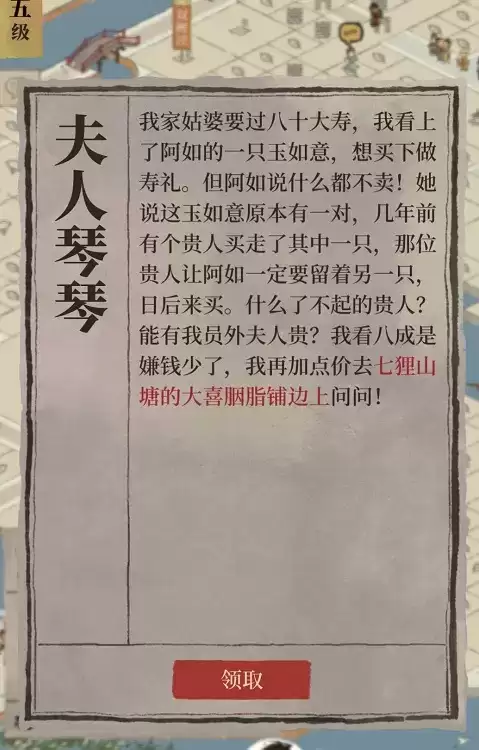 五
级
夫人琴琴
我家姑婆要过八十大寿，我看上
了阿如的一只玉如意，想买下做
寿礼。但阿如说什么都不卖！她
说这玉如意原本有一对，几年前
有个贵人买走了其中一只，那位
贵人让阿如一定要留着另一只，
日后来买。什么了不起的贵人？
能有我员外夫人贵？我看八成是
嫌钱少了，我再加点价去七狸山
塘的大喜胭脂铺边上问问！
领取